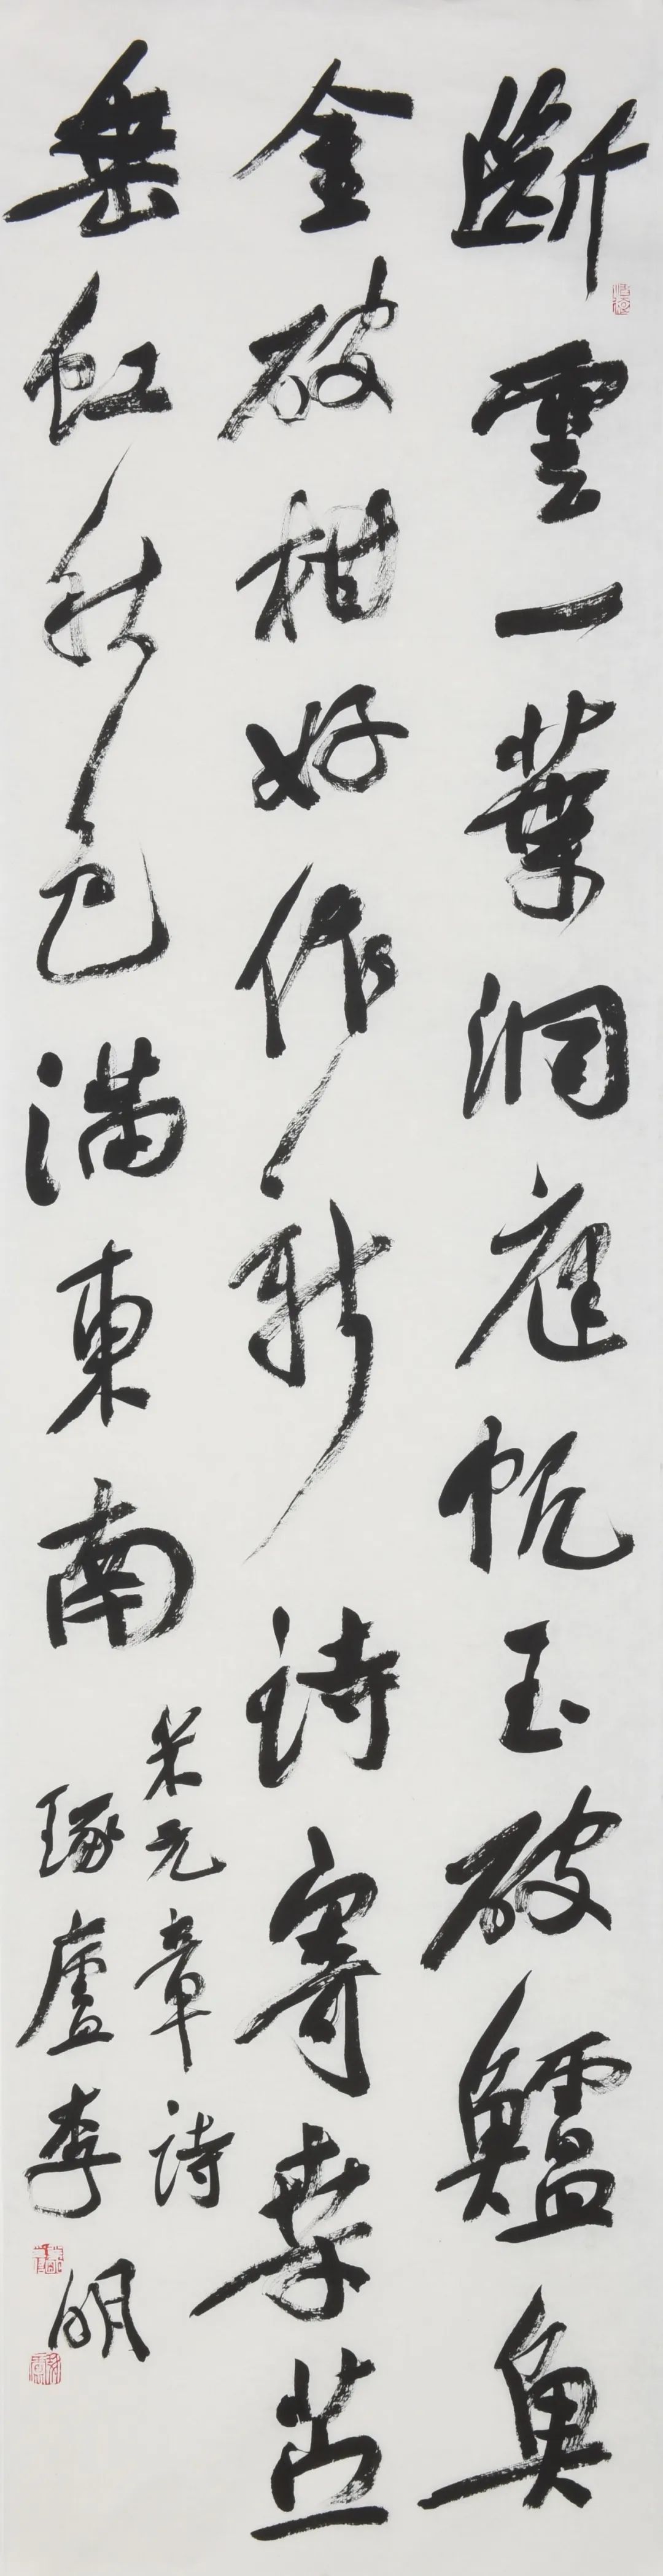 斷雲一葉洞庭帆玉破鱸魚
金破柑好作新詩寄桑苎
垂虹秋色滿東南
米元章詩
琢廬李明